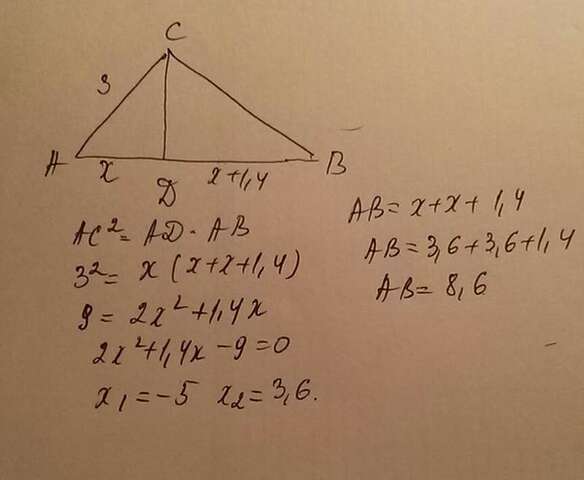 C
3
A
x
D
x+1,4
B
AC²= AD · AB
3²= x (x+x+1,4)
9 = 2x²+1,4x
2x²+1,4x -9=0
x₁=-5 x₂=3,6.
AB= x+x+1,4
AB=3,6+3,6+1,4
AB= 8,6